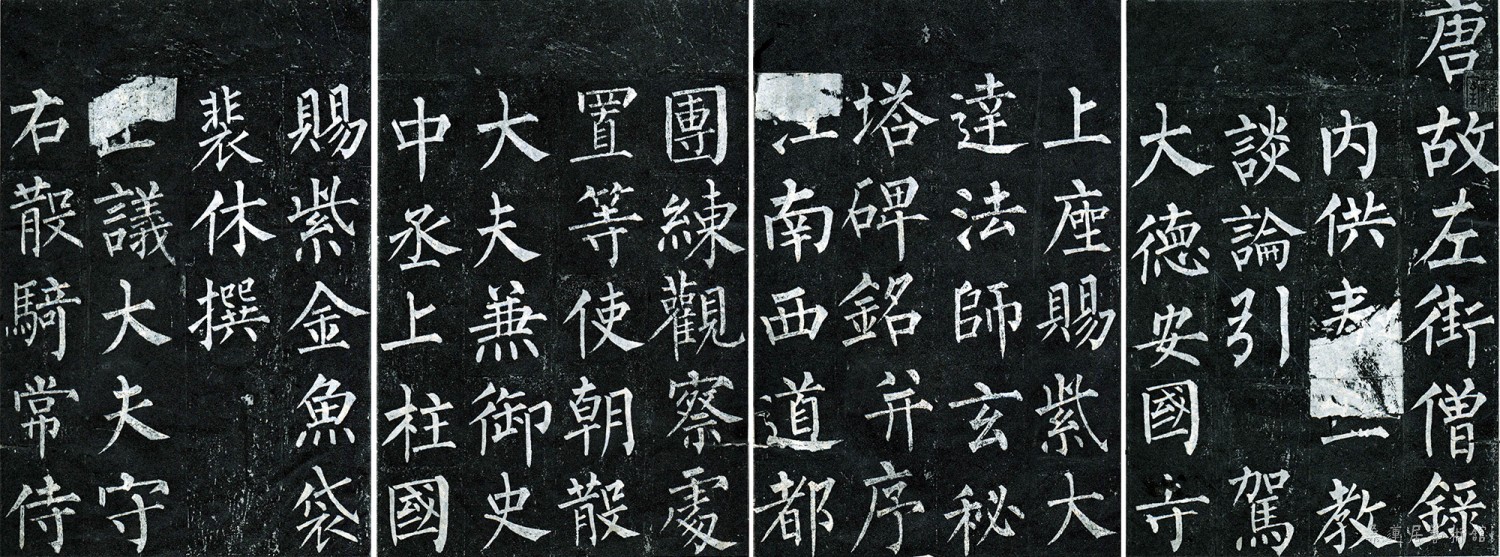 唐故左街僧錄
内供奉三教
談論引駕
大德安國寺
上座賜紫大
達法師玄秘
塔碑銘并序
江南西道都
團練觀察處
置等使朝散
大夫兼御史
中丞上柱國
賜紫金魚袋
裴休撰
正議大夫守
右散騎常侍